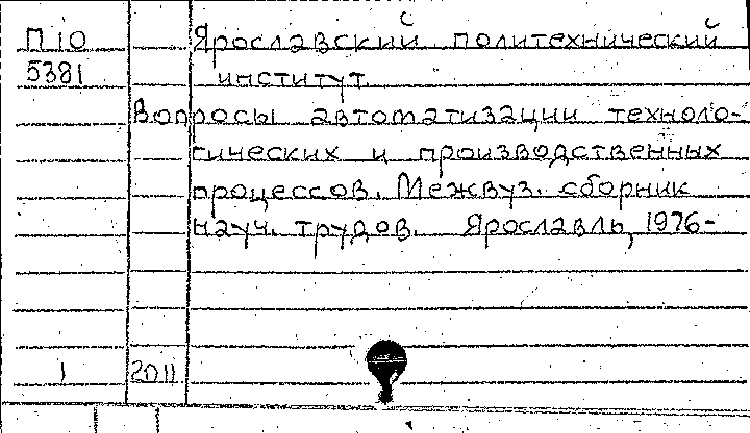 П10 Ярославский политехнический
5381 институт.
Вопросы автоматизации техноло-
гических и производственных
процессов. Межвуз. сборник
науч. трудов. Ярославль, 1976-
1 2011